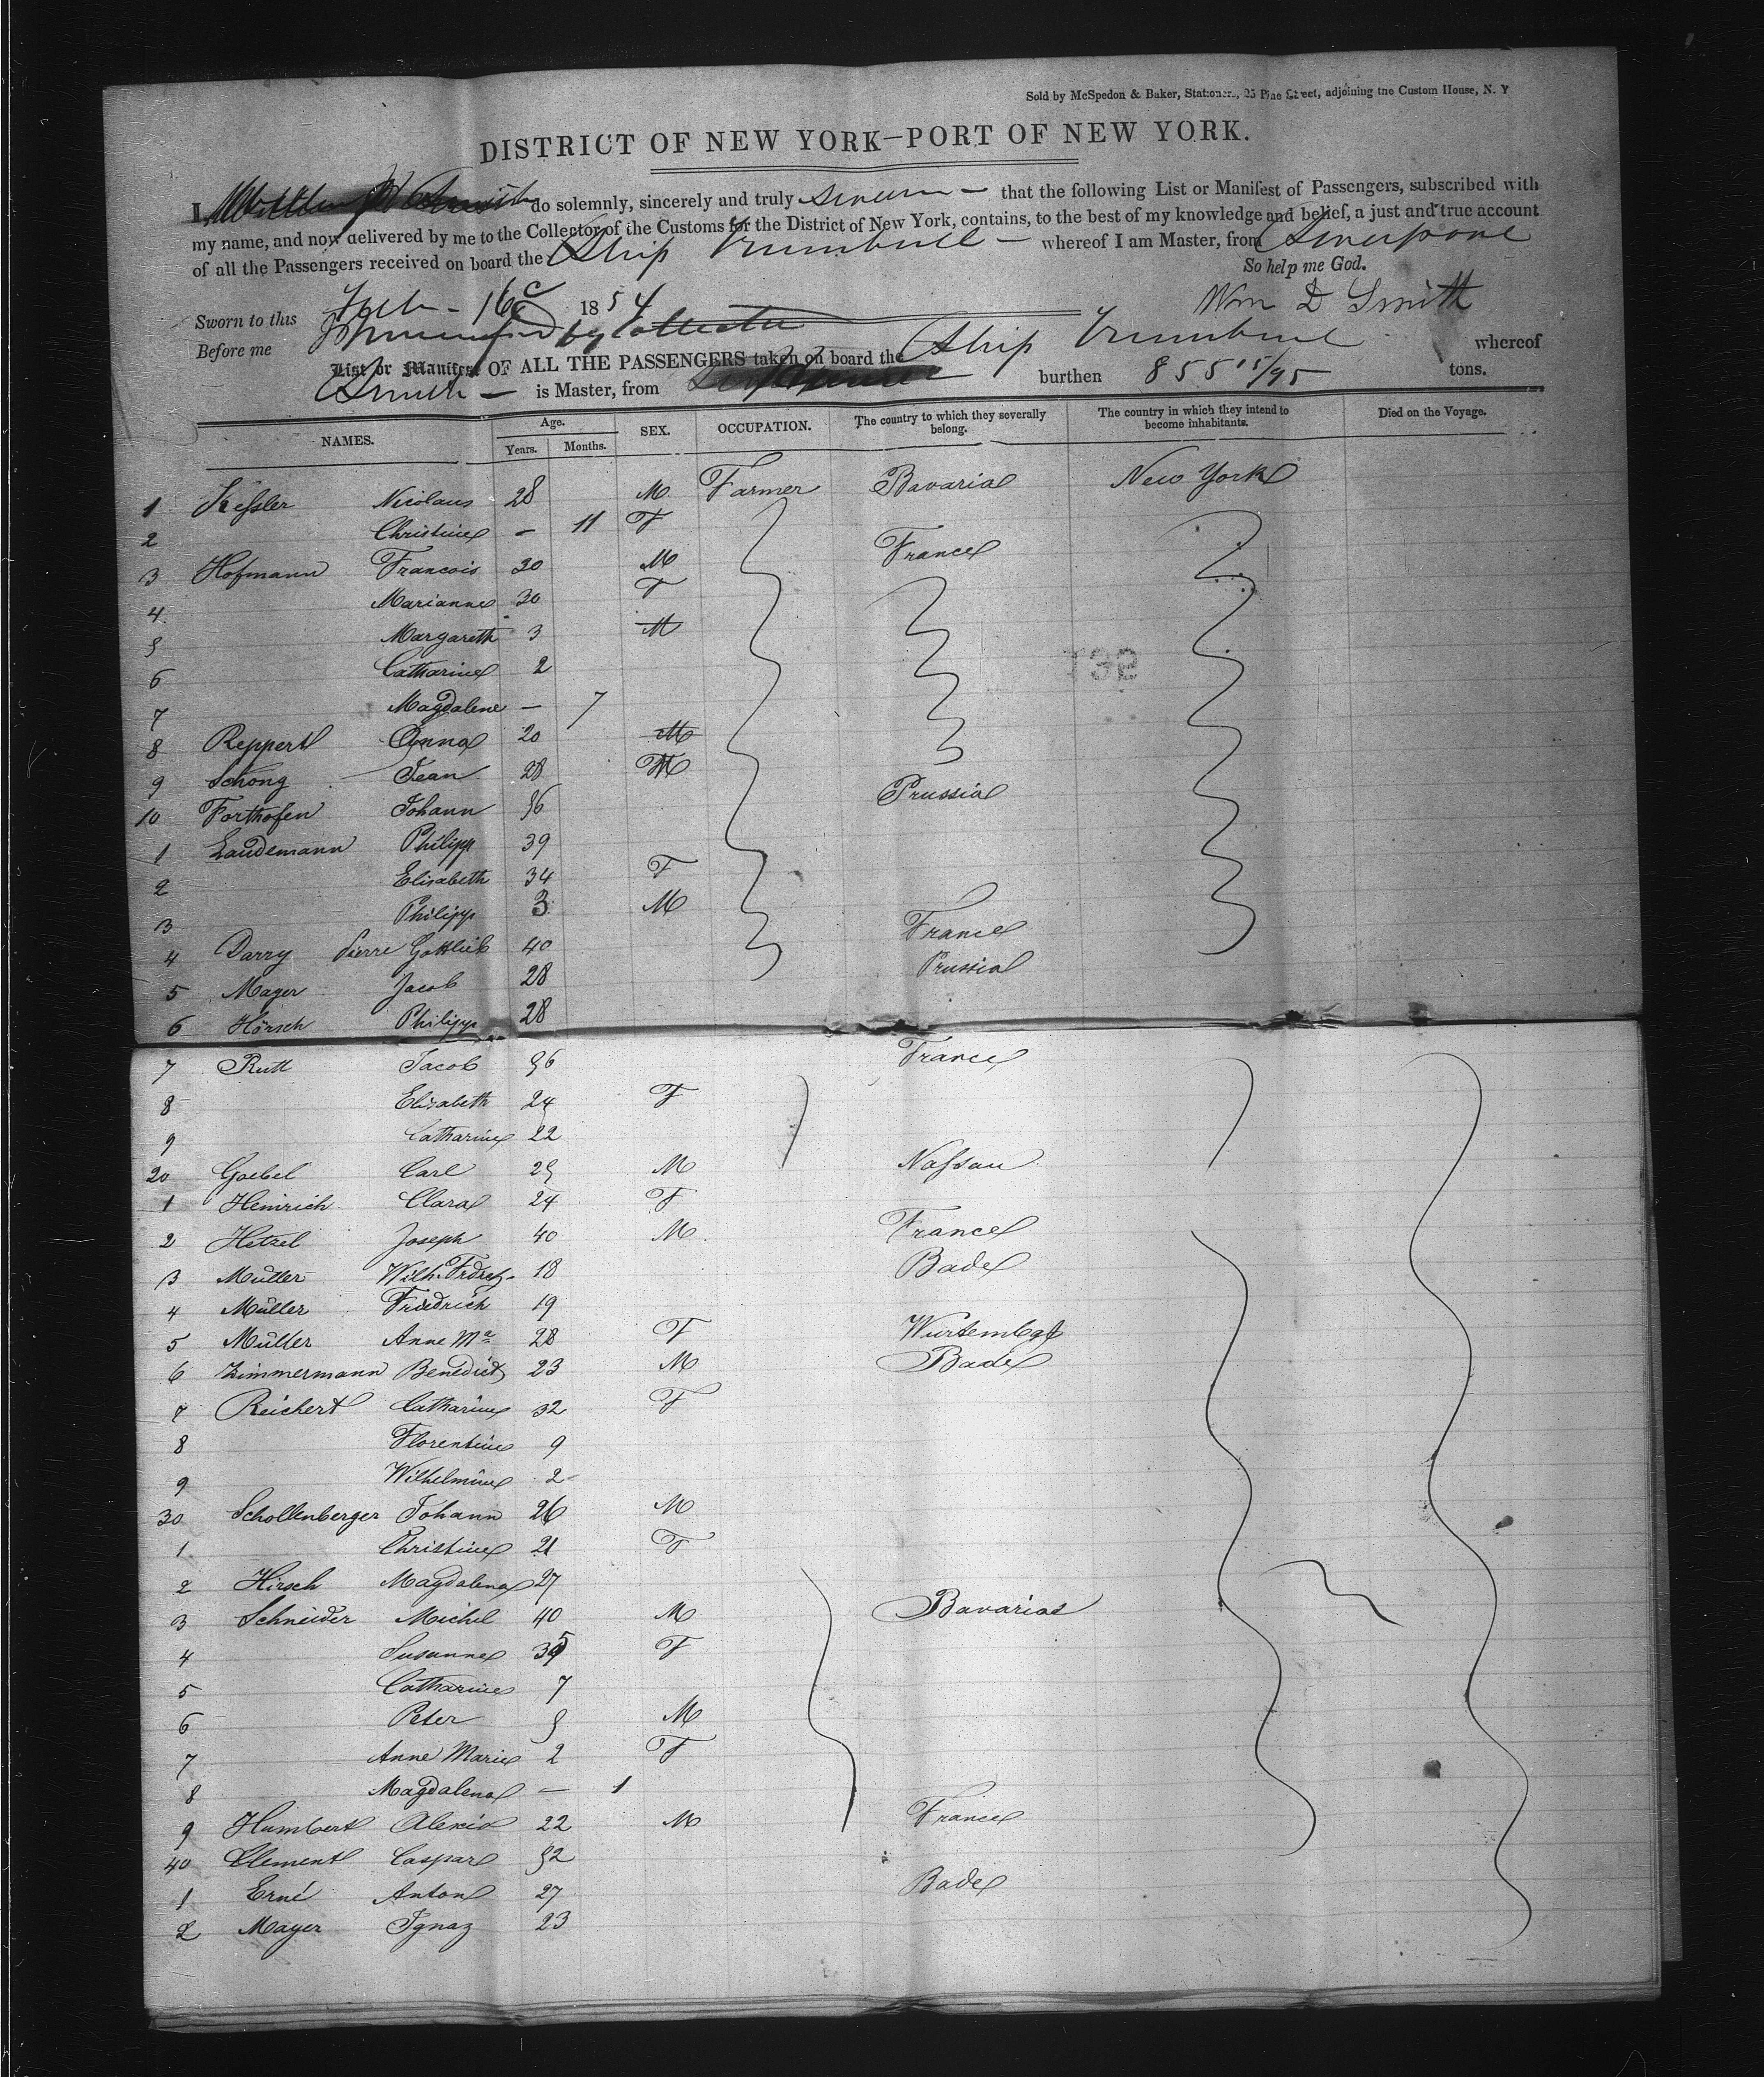 Sold by McSpedon & Baker, Stationers, 25 Pine Street, adjoining the Custom House, N. Y
DISTRICT OF NEW YORK—PORT OF NEW YORK.
I, do solemnly, sincerely and truly swear — that the following List or Manifest of Passengers, subscribed with
my name, and now delivered by me to the Collector of the Customs for the District of New York, contains, to the best of my knowledge and belief, a just and true account
of all the Passengers received on board the Ship Trumbull — whereof I am Master, from Liverpool
So help me God.
Sworn to this Feb - 16 1854 Wm D Smith
Before me
List or Manifest OF ALL THE PASSENGERS taken on board the Ship Trumbull whereof
Smith — is Master, from burthen 855 15/95 tons.
NAMES. Age. Years. Months. SEX. OCCUPATION. The country to which they severally belong. The country in which they intend to become inhabitants. Died on the Voyage.
1 Kessler Nicolaus 28 M Farmer Bavaria New York
2 Christine — 11 F
3 Hofmann Francois 30 M France
4 Marianne 30 F
5 Margareth 3 M
6 Catharine 2
7 Magdalene — 7
8 Reppert Anna 20 M
9 Schong Jean 28 M
10 Forthofen Johann 56 Prussia
1 Laudemann Philipp 39
2 Elisabeth 34 F
3 Philipp 3 M
4 Darry Pierre Gottlieb 40 France
5 Mayer Jacob 28 Prussia
6 Hörsch Philipp 28
7 Rutt Jacob 56 France
8 Elisabeth 24 F
9 Catharine 22
20 Goebel Carl 25 M Nassau
1 Heinrich Clara 24 F
2 Hetzel Joseph 40 M France
3 Müller Wilh. Frdrch. 18 Bade
4 Müller Friedrich 19
5 Müller Anne Ma 28 F Würtembg
6 Zimmermann Benedict 23 M Bade
7 Reichert Catharine 32 F
8 Florentine 9
9 Wilhelmine 2
30 Schollenberger Johann 26 M
1 Christine 21 F
2 Hirsch Magdalena 27
3 Schneider Michel 40 M Bavaria
4 Susanne 35 F
5 Catharine 7
6 Peter 5 M
7 Anne Marie 2 F
8 Magdalena — 1
9 Humbert Alexis 22 M France
40 Clement Caspar 52
1 Erné Anton 27 Bade
2 Mayer Ignaz 23